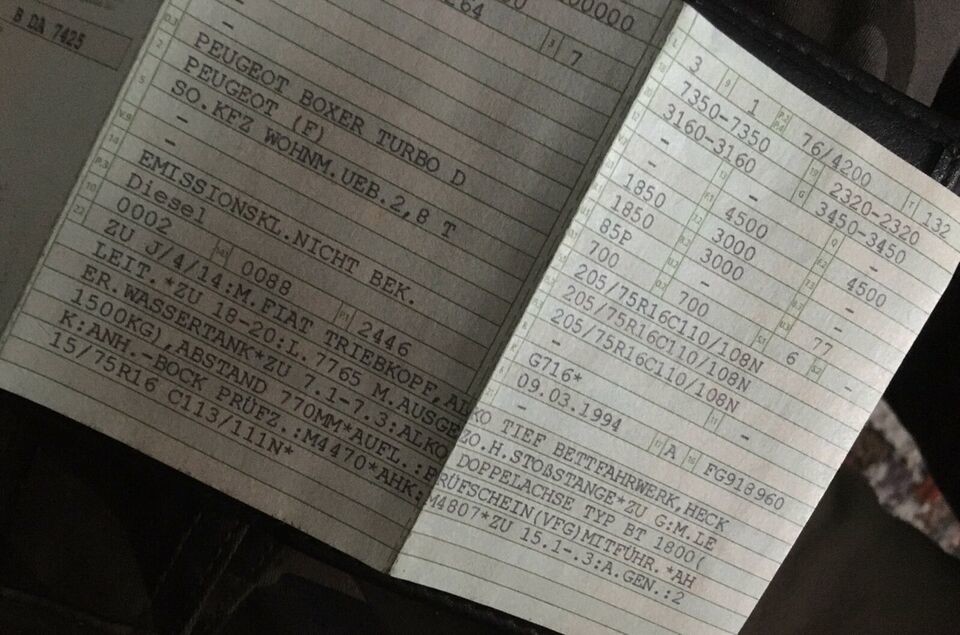 B DA 7425
00000
7
PEUGEOT BOXER TURBO D
PEUGEOT (F)
SO.KFZ WOHNM.UEB.2,8 T
-
-
EMISSIONSKL.NICHT BEK.
Diesel
0002 0088 2446
ZU J/4/14:M.FIAT TRIEBKOPF,AL
LEIT.*ZU 18-20:L.7765 M.AUSGE
ER.WASSERTANK*ZU 7.1-7.3:ALKO
1500KG),ABSTAND 770MM*AUFL.:
K:ANH.-BOCK PRÜFZ.:M4470*AHK:
15/75R16 C113/111N*
3 1 76/4200 132
7350-7350 2320-2320
3160-3160 - 3450-3450
- 4500 -
1850 3000 4500
1850 3000 -
85P - 77
700 700 6 -
205/75R16C110/108N
205/75R16C110/108N
205/75R16C110/108N
- -
G716*
09.03.1994 A FG918960
-
KO TIEF BETTFAHRWERK,HECK
ZO.H.STOßSTANGE*ZU G:M.LE
DOPPELACHSE TYP BT 1800(
RÜFSCHEIN(VFG)MITFÜHR.*AH
M4807*ZU 15.1-.3:A.GEN.:2